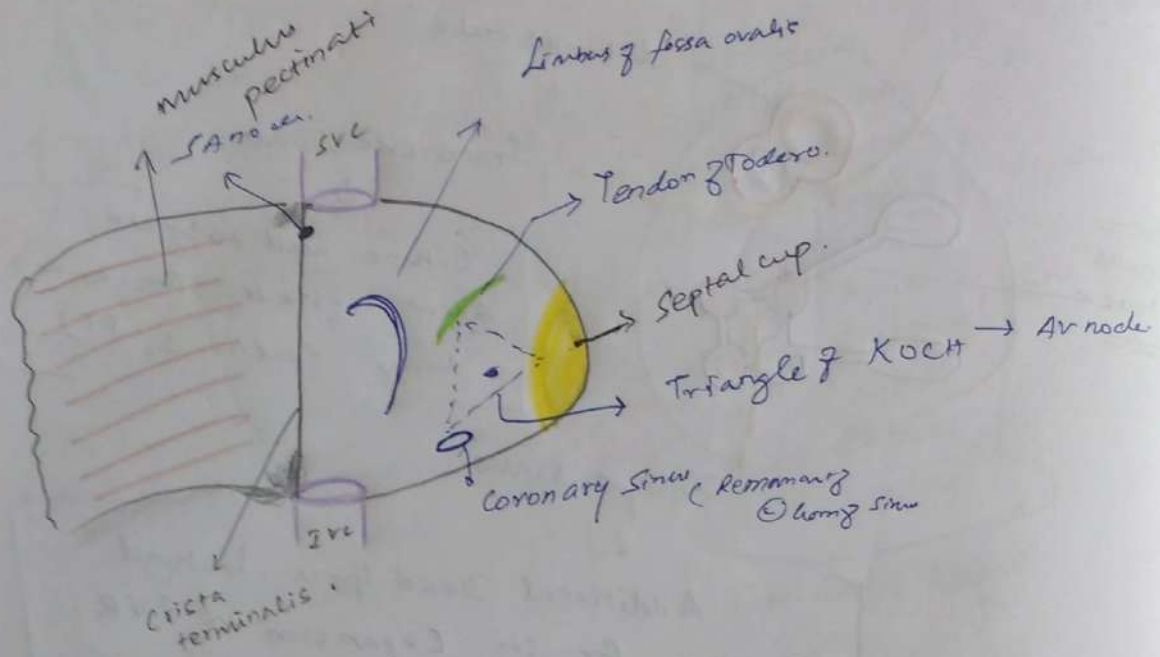 musculus
pectinati
SA node.
SVC
Limbus of fossa ovalis
Tendon of Todero.
Septal cusp.
Triangle of KOCH → AV node
Coronary Sinus (Remnant of
horn of sinus
IVC
Crista
terminalis.